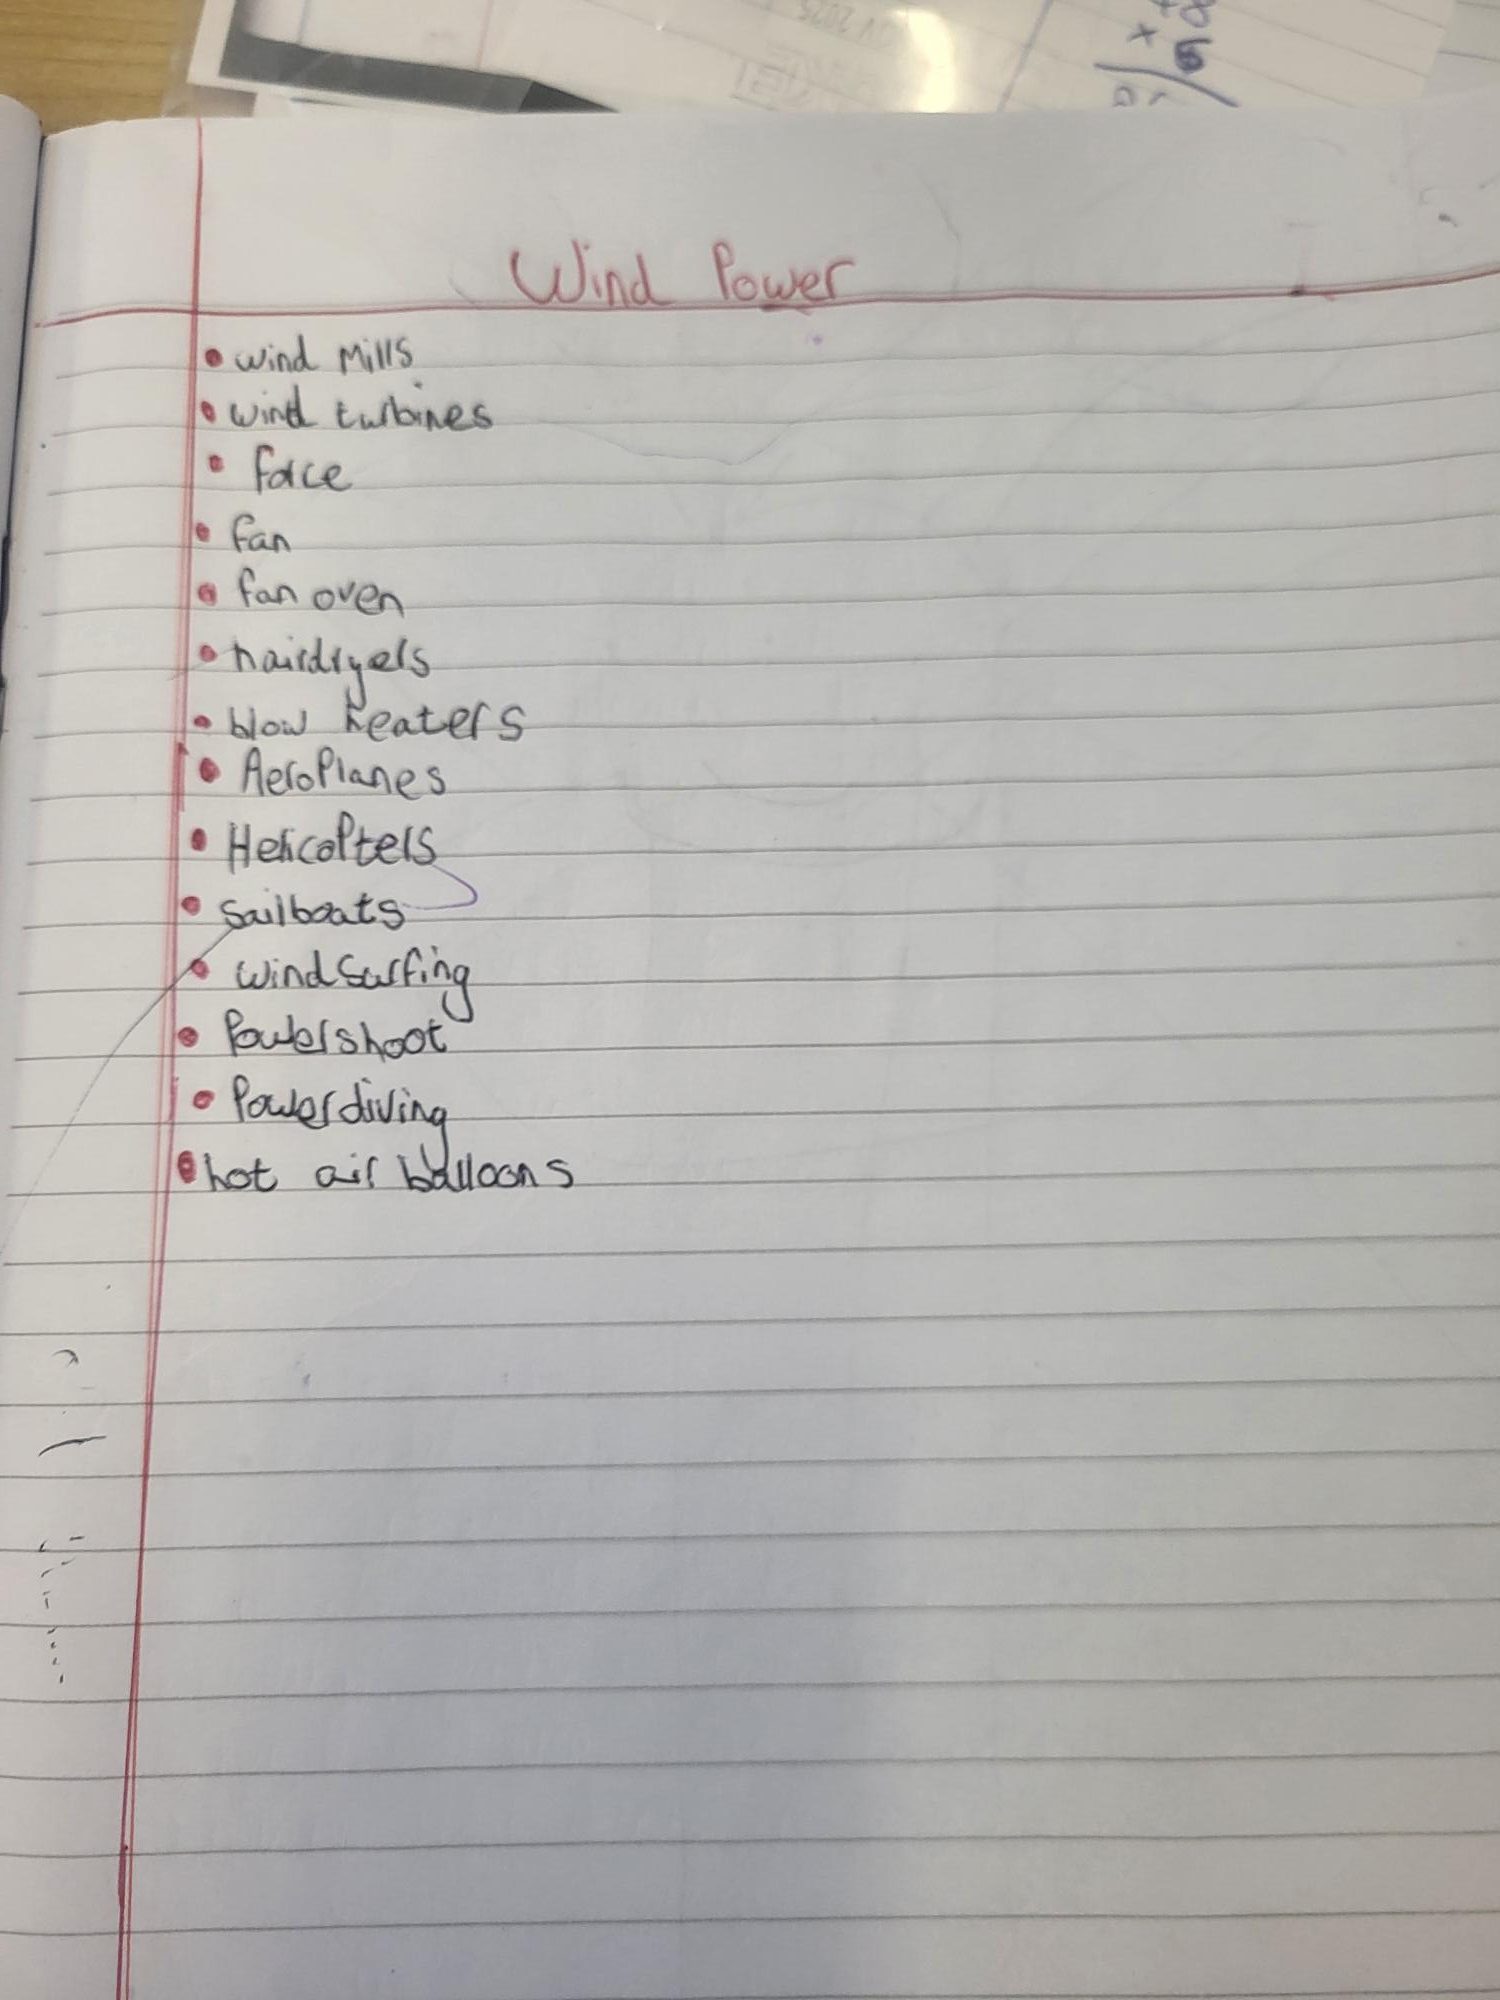 Wind Power
• wind Mills
• wind turbines
• force
• fan
• fan oven
• hairdryers
• blow heaters
• AeroPlanes
• HelicoPters
• Sailboats
• wind Surfing
• Powershoot
• Powerdiving
• hot air balloons